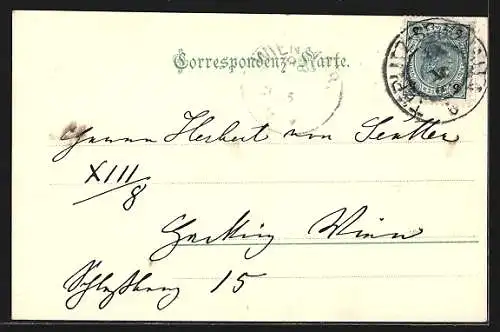 Correspondenz-Karte.
WIEN
Herrn Herbert von Sattler
XIII/8
Hacking Wien
Schloßberg 15